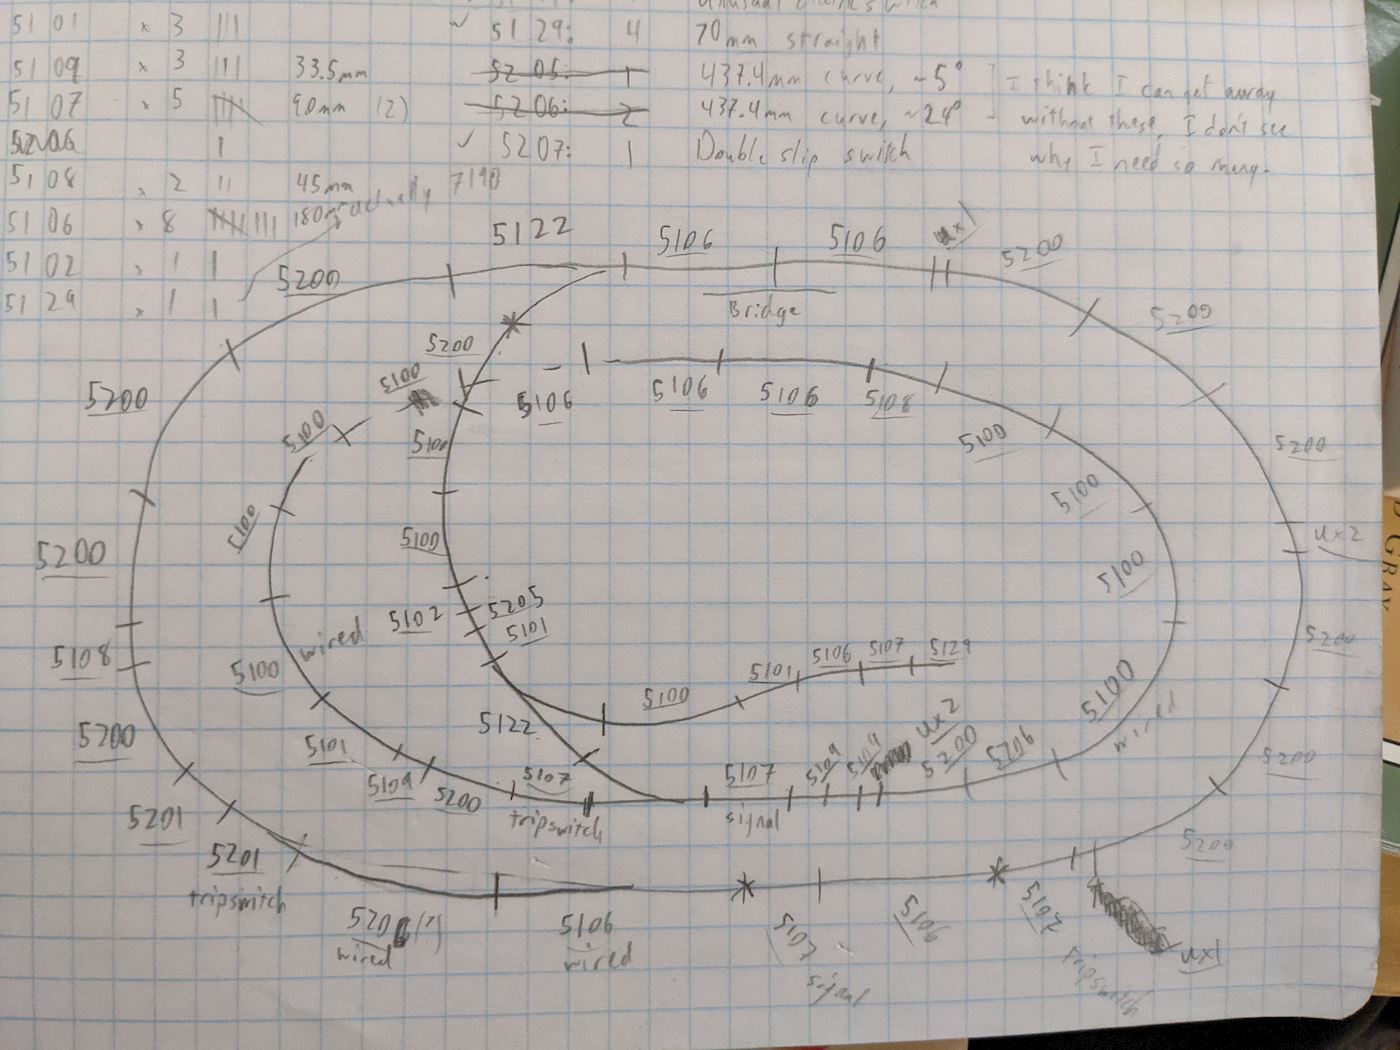 5101 x 3 |||
5109 x 3 ||| 33.5mm
5107 x 5 |||| 90mm (2)
5206 |
5108 x 2 || 45mm
5106 x 8 |||| ||| 180mm actually 7190
5102 x 1 |
5129 x 1 |
✓ 5129: 4 70mm straight
5205: 1 437.4mm curve, ~5° I think I can get away
5206: 2 437.4mm curve, ~24° - without these, I don't see
✓ 5207: 1 Double slip switch why I need so many.
5122
5106
5106
ux1
5200
5200
Bridge
5200
5200
5100
5200
5106
5106
5106
5108
5100
5200
5100
5100
5100
5100
5200
ux2
5100
5200
5100
5100
5102
5205
5101
5200
5108
wired
5100
5101
5106
5107
5129
5100
5100
wired
5200
5122
5101
5109
5200
5107
tripswitch
5107
signal
5109
5109
ux2
5200
5206
5200
5201
5201
tripswitch
5200
5206 (?)
wired
5106
wired
5107
signal
5106
5107
tripswitch
ux1